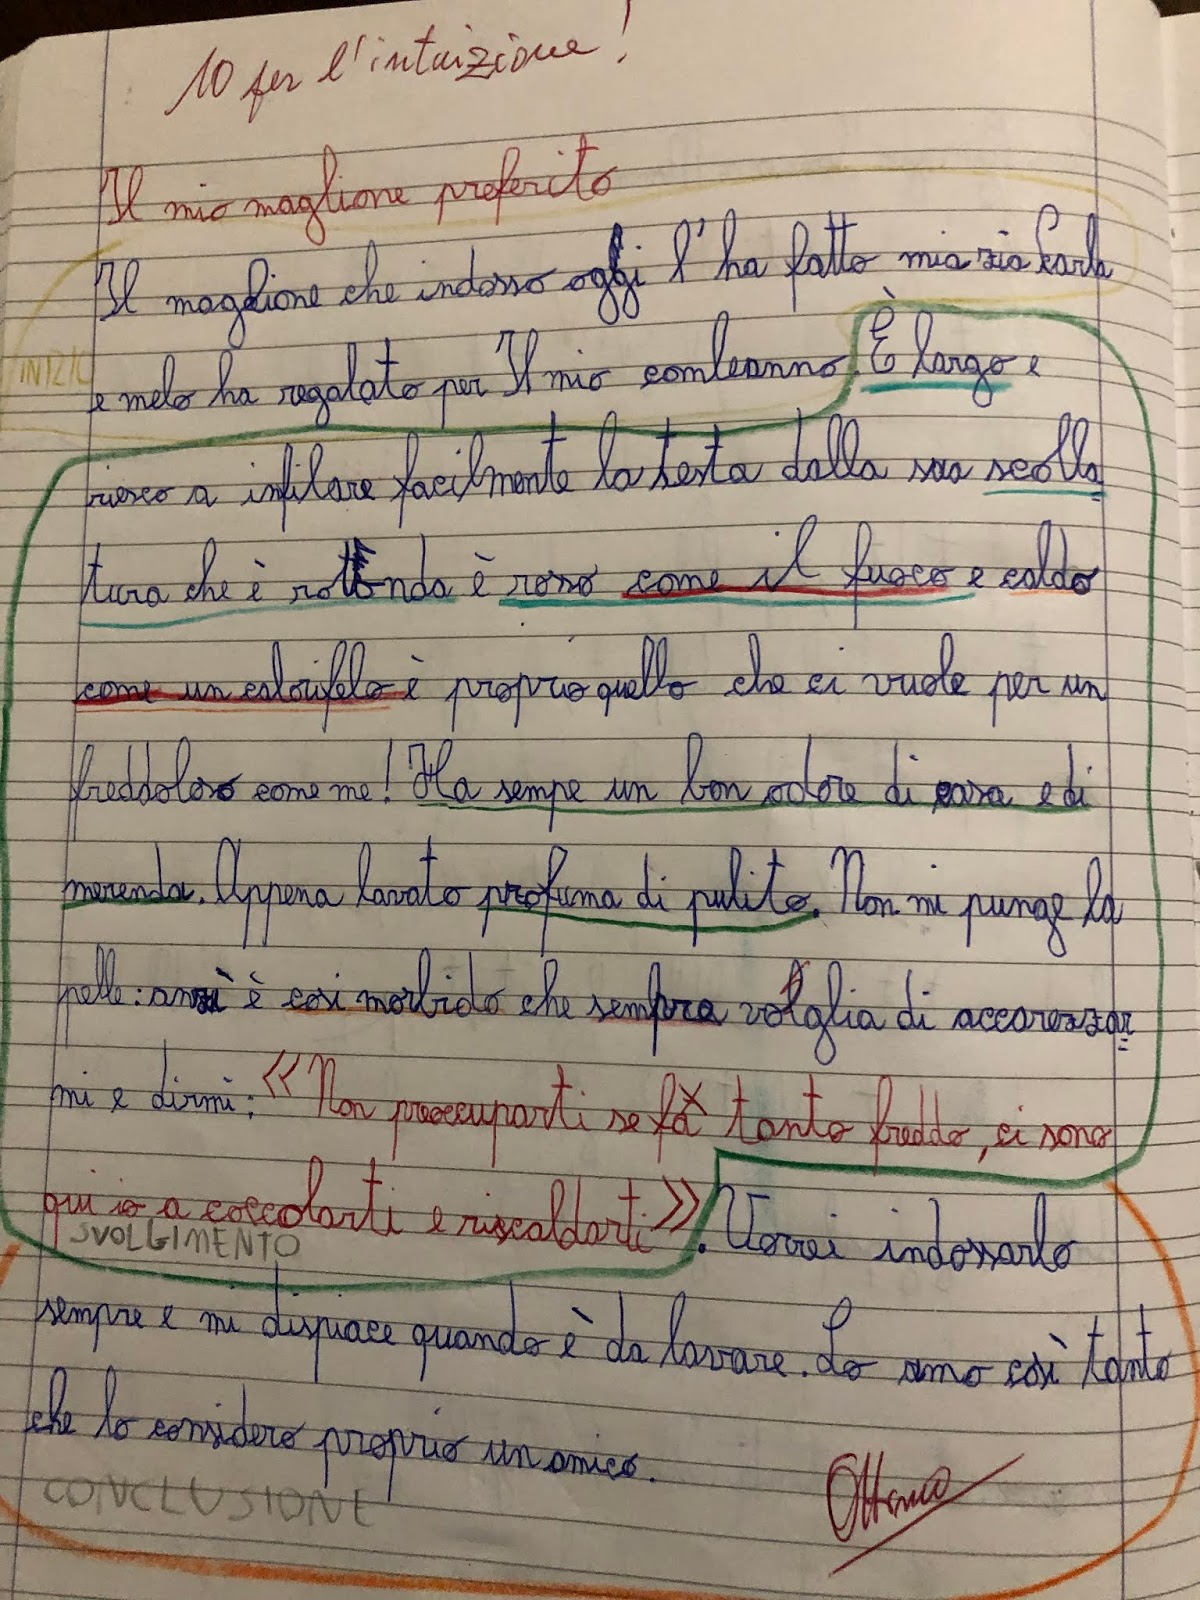 10 per l'intuizione!
Il mio maglione preferito
Il maglione che indosso oggi l'ha fatto mia zia Carla
INIZIO
e melo ha regalato per Il mio comleanno. È largo e
riesco a infilare facilmente la testa dalla sua scolla
tura che è rotonda è rosso come il fuoco e caldo
come un calorifelo è proprio quello che ci vuole per un
freddoloso come me! Ha sempe un bon odore di casa e di
merenda. Appena lavato profuma di pulito. Non mi punge la
pelle: anzi è così morbido che sempra voglia di accarezzar
mi e dirmi: «Non preoccuparti se fa tanto freddo, ci sono
qui io a coccolarti e riscaldarti». Vorrei indossarlo
SVOLGIMENTO
sempre e mi dispiace quando è da lavare. Lo amo così tanto
che lo considero proprio un amico.
CONCLUSIONE